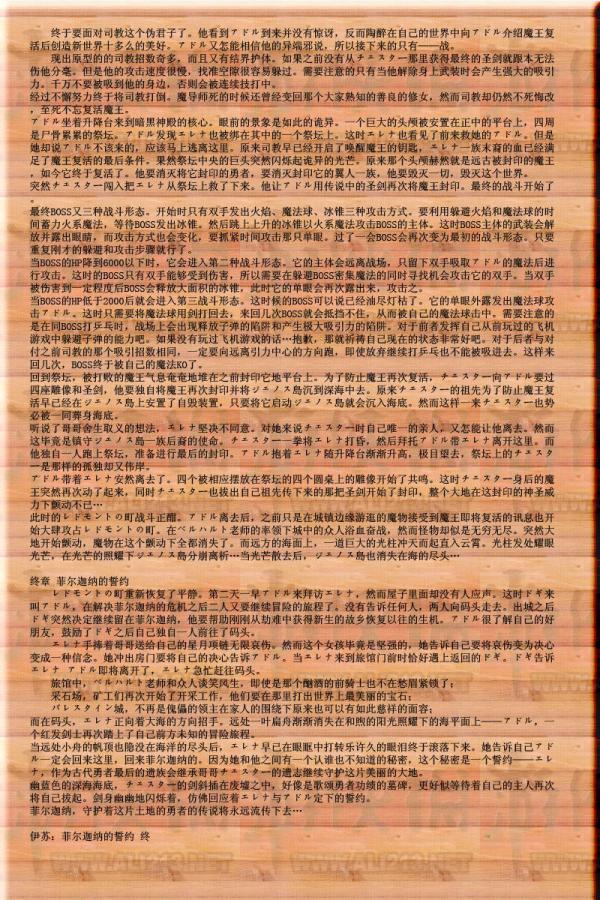 终于要面对司教这个伪君子了。他看到アドル到来并没有惊讶，反而陶醉在自己的世界中向アドル介绍魔王复
活后创造新世界十多么的美好。アドル又怎能相信他的异端邪说，所以接下来的只有——战。
现出原型的的司教招数奇多，而且又有结界护体。如果之前没有从チェスター那里获得最终的圣剑就跟本无法
伤他分毫。但是他的攻击速度很慢，找准空隙很容易躲过。需要注意的只有当他解除身上武装时会产生强大的吸引
力，千万不要被吸到他的身边，否则会被连续技打中。
经过不懈努力终于将司教打倒。魔导师死的时候还曾经变回那个大家熟知的善良的修女，然而司教却仍然不死悔改
，至死不忘复活魔王。
アドル坐着升降台来到暗黑神殿的核心。眼前的景象是如此的诡异。一个巨大的头颅被安置在正中的平台上，四周
是尸骨累累的祭坛。アドル发现エレナ也被绑在其中的一个祭坛上。这时エレナ也看见了前来救她的アドル。但是
她却说アドル不该来的，应该马上逃离这里。原来司教早已经开启了唤醒魔王的钥匙，エレナ一族末裔的血已经满
足了魔王复活的最后条件。果然祭坛中央的巨头突然闪烁起诡异的光芒。原来那个头颅赫然就是远古被封印的魔王
，如今它终于复活了。他要消灭将它封印的勇者，要消灭封印它的翼人一族，他要毁灭一切，毁灭这个世界。
突然チェスター闯入把エレナ从祭坛上救了下来。他让アドル用传说中的圣剑再次将魔王封印。最终的战斗开始了
。
最终BOSS又三种战斗形态。开始时只有双手发出火焰、魔法球、冰锥三种攻击方式。要利用躲避火焰和魔法球的时
间蓄力火系魔法，等待BOSS发出冰锥。然后跳上上升的冰锥以火系魔法攻击BOSS的主体。这时BOSS主体的武装会解
放并露出眼睛，而攻击方式也会变化，要抓紧时间攻击那只单眼。过了一会BOSS会再次变为最初的战斗形态。只要
重复刚才的躲避和攻击步骤就行了。
当BOSS的HP降到6000以下时，它会进入第二种战斗形态。它的主体会远离战场，只留下双手吸取アドル的魔法后进
行攻击。这时的BOSS只有双手能够受到伤害，所以需要在躲避BOSS密集魔法的同时寻找机会攻击它的双手。当双手
被伤害到一定程度后BOSS会释放大面积的冰锥，此时它的单眼会再次露出来，攻击之。
当BOSS的HP低于2000后就会进入第三战斗形态。这时候的BOSS可以说已经油尽灯枯了。它的单眼外露发出魔法球攻
击アドル。这时只需要将魔法球用剑打回去，来回几次BOSS就会抵挡不住，从而被自己的魔法球击中。需要注意的
是在同BOSS打乒乓时，战场上会出现释放子弹的陷阱和产生极大吸引力的陷阱。对于前者发挥自己从前玩过的飞机
游戏中躲避子弹的能力吧。如果没有玩过飞机游戏的话…抱歉，那就祈祷自己现在的状态非常好吧。对于后者与对
付之前司教的那个吸引招数相同，一定要向远离引力中心的方向跑，即使放弃继续打乒乓也不能被吸进去。这样来
回几次，BOSS终于被自己的魔法KO了。
回到祭坛，被打败的魔王气息奄奄地堆在之前封印它地平台上。为了防止魔王再次复活，チェスター向アドル要过
四座雕像和圣剑，他要独自将魔王再次封印并将ジェノス島沉到深海中去。原来チェスター的祖先为了防止魔王复
活早已经在ジェノス島上安置了自毁装置，只要将它启动ジェノス島就会沉入海底。然而这样一来チェスター也势
必被一同葬身海底。
听说了哥哥舍生取义的想法，エレナ坚决不同意。对她来说チェスター时自己唯一的亲人，又怎能让他离去。然而
这毕竟是镇守ジェノス島一族后裔的使命。チェスター一拳将エレナ打昏，然后拜托アドル带エレナ离开这里。而
他独自一人跑上祭坛，准备进行最后的封印。アドル抱着エレナ随升降台渐渐升高，极目望去，祭坛上的チェスタ
ー是那样的孤独却又伟岸。
アドル带着エレナ安然离去了。四个被相应摆放在祭坛的四个圆桌上的雕像开始了共鸣。这时チェスター身后的魔
王突然再次动了起来，同时チェスター也拔出自己祖先传下来的那把圣剑开始了封印，整个大地在这封印的神圣威
力下颤动不已…
此时的レドモントの町战斗正酣。アドル离去后。之前只是在城镇边缘游逛的魔物接受到魔王即将复活的讯息也开
始大肆攻占レドモントの町。在ベルハルト老师的率领下城中的众人浴血奋战，然而怪物却似是无穷无尽。突然大
地开始颤动，魔物在这个颤动下全都消失了。而远方的海面上，一道巨大的光柱冲天而起直入云霄。光柱发处耀眼
光芒，在光芒的照耀下ジェノス島分崩离析…当光芒散去后，ジェノス島也消失在海的尽头…
终章 菲尔迦纳的誓约
レドモントの町重新恢复了平静。第二天一早アドル来拜访エレナ，然而屋子里面却没有人应声。这时ドギ来
叫アドル。在解决菲尔迦纳的危机之后二人又要继续冒险的旅程了。没有告诉任何人，两人向码头走去。出城之后
ドギ突然决定继续留在菲尔迦纳，他要帮助刚刚从劫难中获得新生的故乡恢复以往的生机。アドル很了解自己的好
朋友，鼓励了ドギ之后自己独自一人前往了码头。
エレナ手捧着哥哥送给自己的星月项链无限哀伤。然而这个女孩毕竟是坚强的，她告诉自己要将哀伤变为决心
变成一种信念。她冲出房门要将自己的决心告诉アドル。当エレナ来到旅馆门前时恰好遇上返回的ドギ。ドギ告诉
エレナ アドル即将离开了，エレナ急忙赶往码头。
旅馆中，ベルハルト老师和众人谈笑风生，即使是那个酗酒的前骑士也不在愁眉紧锁了；
采石场，矿工们再次开始了开采工作，他们要在那里打出世界上最美丽的宝石；
バレスタイン城，不再是傀儡的领主在家人的围绕下原来也可以有如此慈祥的面容；
而在码头，エレナ正向着大海的方向招手。远处一叶扁舟渐渐消失在和煦的阳光照耀下的海平面上——アドル，一
个红发剑士再次踏上了自己前方未知的冒险旅程。
当远处小舟的帆顶也隐没在海洋的尽头后，エレナ早已在眼眶中打转乐许久的眼泪终于滚落下来。她告诉自己アド
ル一定会回来这里，回来菲尔迦纳的。因为她和他之间有一个认谁也不知道的秘密，这个秘密是一个誓约——エレ
ナ，作为古代勇者最后的遗族会继承哥哥チェスター的遗志继续守护这片美丽的大地。
幽蓝色的深海海底，チェスター的剑斜插在废墟之中，好像是歌颂勇者功绩的墓碑，更好似等待着自己的主人再次
将自己拔起。剑身幽幽地闪烁着，仿佛回应着エレナ与アドル定下的誓约。
菲尔迦纳，守护着这片土地的勇者的传说将永远流传下去…
伊苏：菲尔迦纳的誓约 终